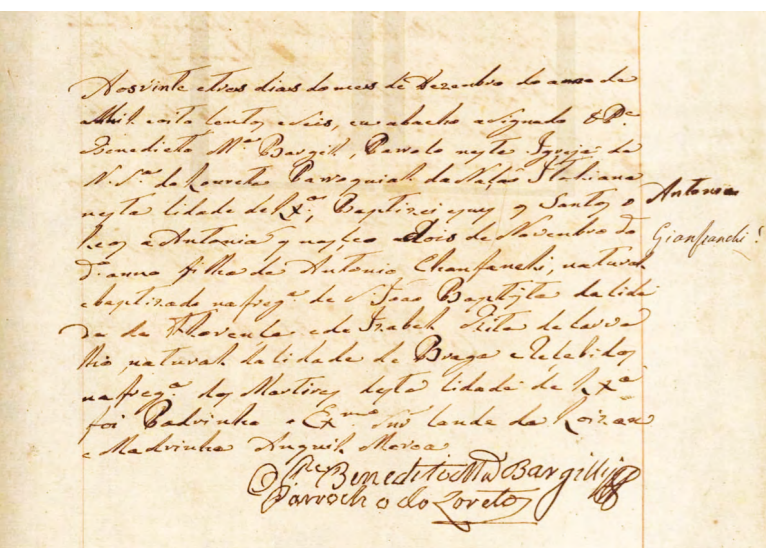 Aos vinte e tres dias do mes de Dezembro do anno de
Mil oito Centos e Seis, eu abacho asignado o Pe.
Benedicto Ma. Bargili, Parroco nesta Igreja de
N. Sra. do Loureto Parroquial da Nasão Italiana
Antonia
nesta Cidade de Lxa., Baptizei e puz os Santos o
Gianfranchi
leos a Antonia q nasceo a dois de Novembro do
Do. anno filha de Antonio Chanfanchi, natural
e baptizado na frega. de S João Baptista da Cida
de de Florença e de Izabel Rita de Carva
lho, natural da Cidade de Braga e Recebidos
na frega. dos Martires desta Cidade de Lxa
foi Padrinho o Exmo. Snr Conde da
e Madrinha
O Pe Benedito Ma Bargilli
Parrocho do Loreto